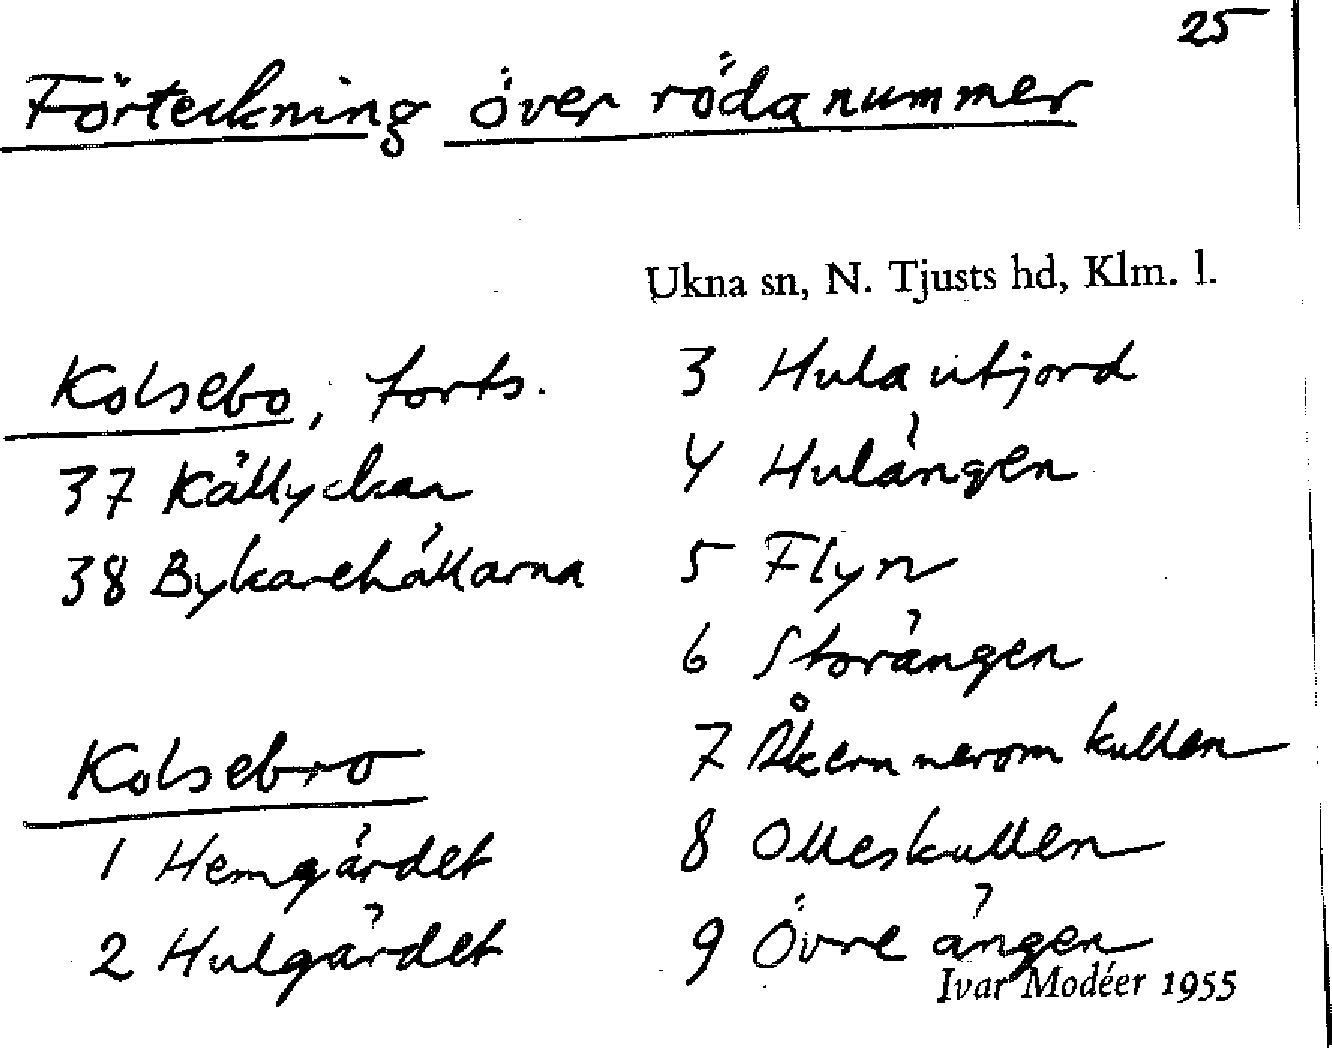 25
Förteckning över röda nummer
Ukna sn, N. Tjusts hd, Klm. l.
Kolsebo, forts.
37 Källyckan
38 Bykarehällarna
Kolsebro
1 Hemgärdet
2 Hulgärdet
3 Hula utjord
4 Hulängen
5 Flyn
6 Storängen
7 Åkern nerom kullen
8 Olleskullen
9 Övre ängen
Ivar Modéer 1955